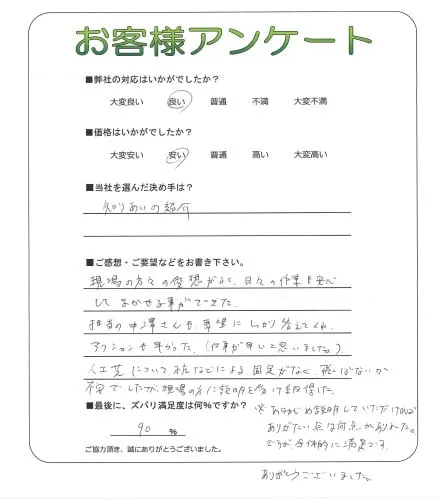 お客様アンケート
■弊社の対応はいかがでしたか?
大変良い 良い 普通 不満 大変不満
■価格はいかがでしたか?
大変安い 安い 普通 高い 大変高い
■当社を選んだ決め手は?
知りあいの紹介
■ご感想・ご要望などをお書き下さい。
現場の方々の愛想がよく、日々の作業も安心
してまかせる事ができた。
担当の中澤さんも要望にしっかり答えてくれ、
アクションも早かった。(仕事が早いと思いました)。
人工芝について、杭などによる固定がなく、飛ばないか
不安でしたが、現場の方に説明を受け納得した。
■最後に、ズバリ満足度は何%ですか?
90 %
※あらかじめ説明していただければ
ありがたい点は何点かありました。
ですが、全体的に満足です。
ご協力頂き、誠にありがとうございました。
ありがとうございました。